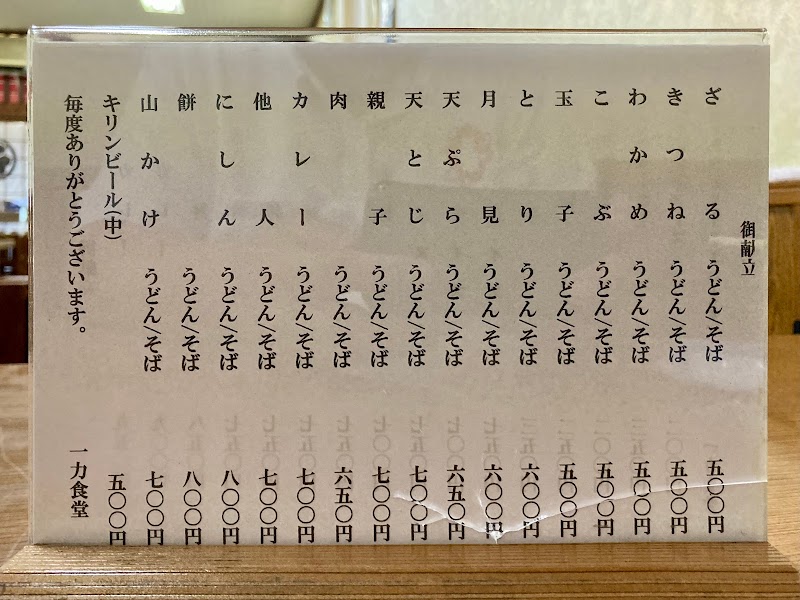 御献立
ざる うどん/そば 五〇〇円
きつね うどん/そば 五〇〇円
わかめ うどん/そば 五〇〇円
こぶ うどん/そば 五〇〇円
玉子 うどん/そば 五〇〇円
とり うどん/そば 六〇〇円
月見 うどん/そば 六〇〇円
天ぷら うどん/そば 六五〇円
天とじ うどん/そば 七〇〇円
親子 うどん/そば 七〇〇円
肉 うどん/そば 六五〇円
カレー うどん/そば 七〇〇円
他人 うどん/そば 七〇〇円
にしん うどん/そば 八〇〇円
餅 うどん/そば 八〇〇円
山かけ うどん/そば 七〇〇円
キリンビール(中) 五〇〇円
毎度ありがとうございます。 一力食堂